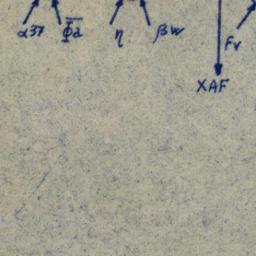 α37 Φ2 η βw Fv
XAF